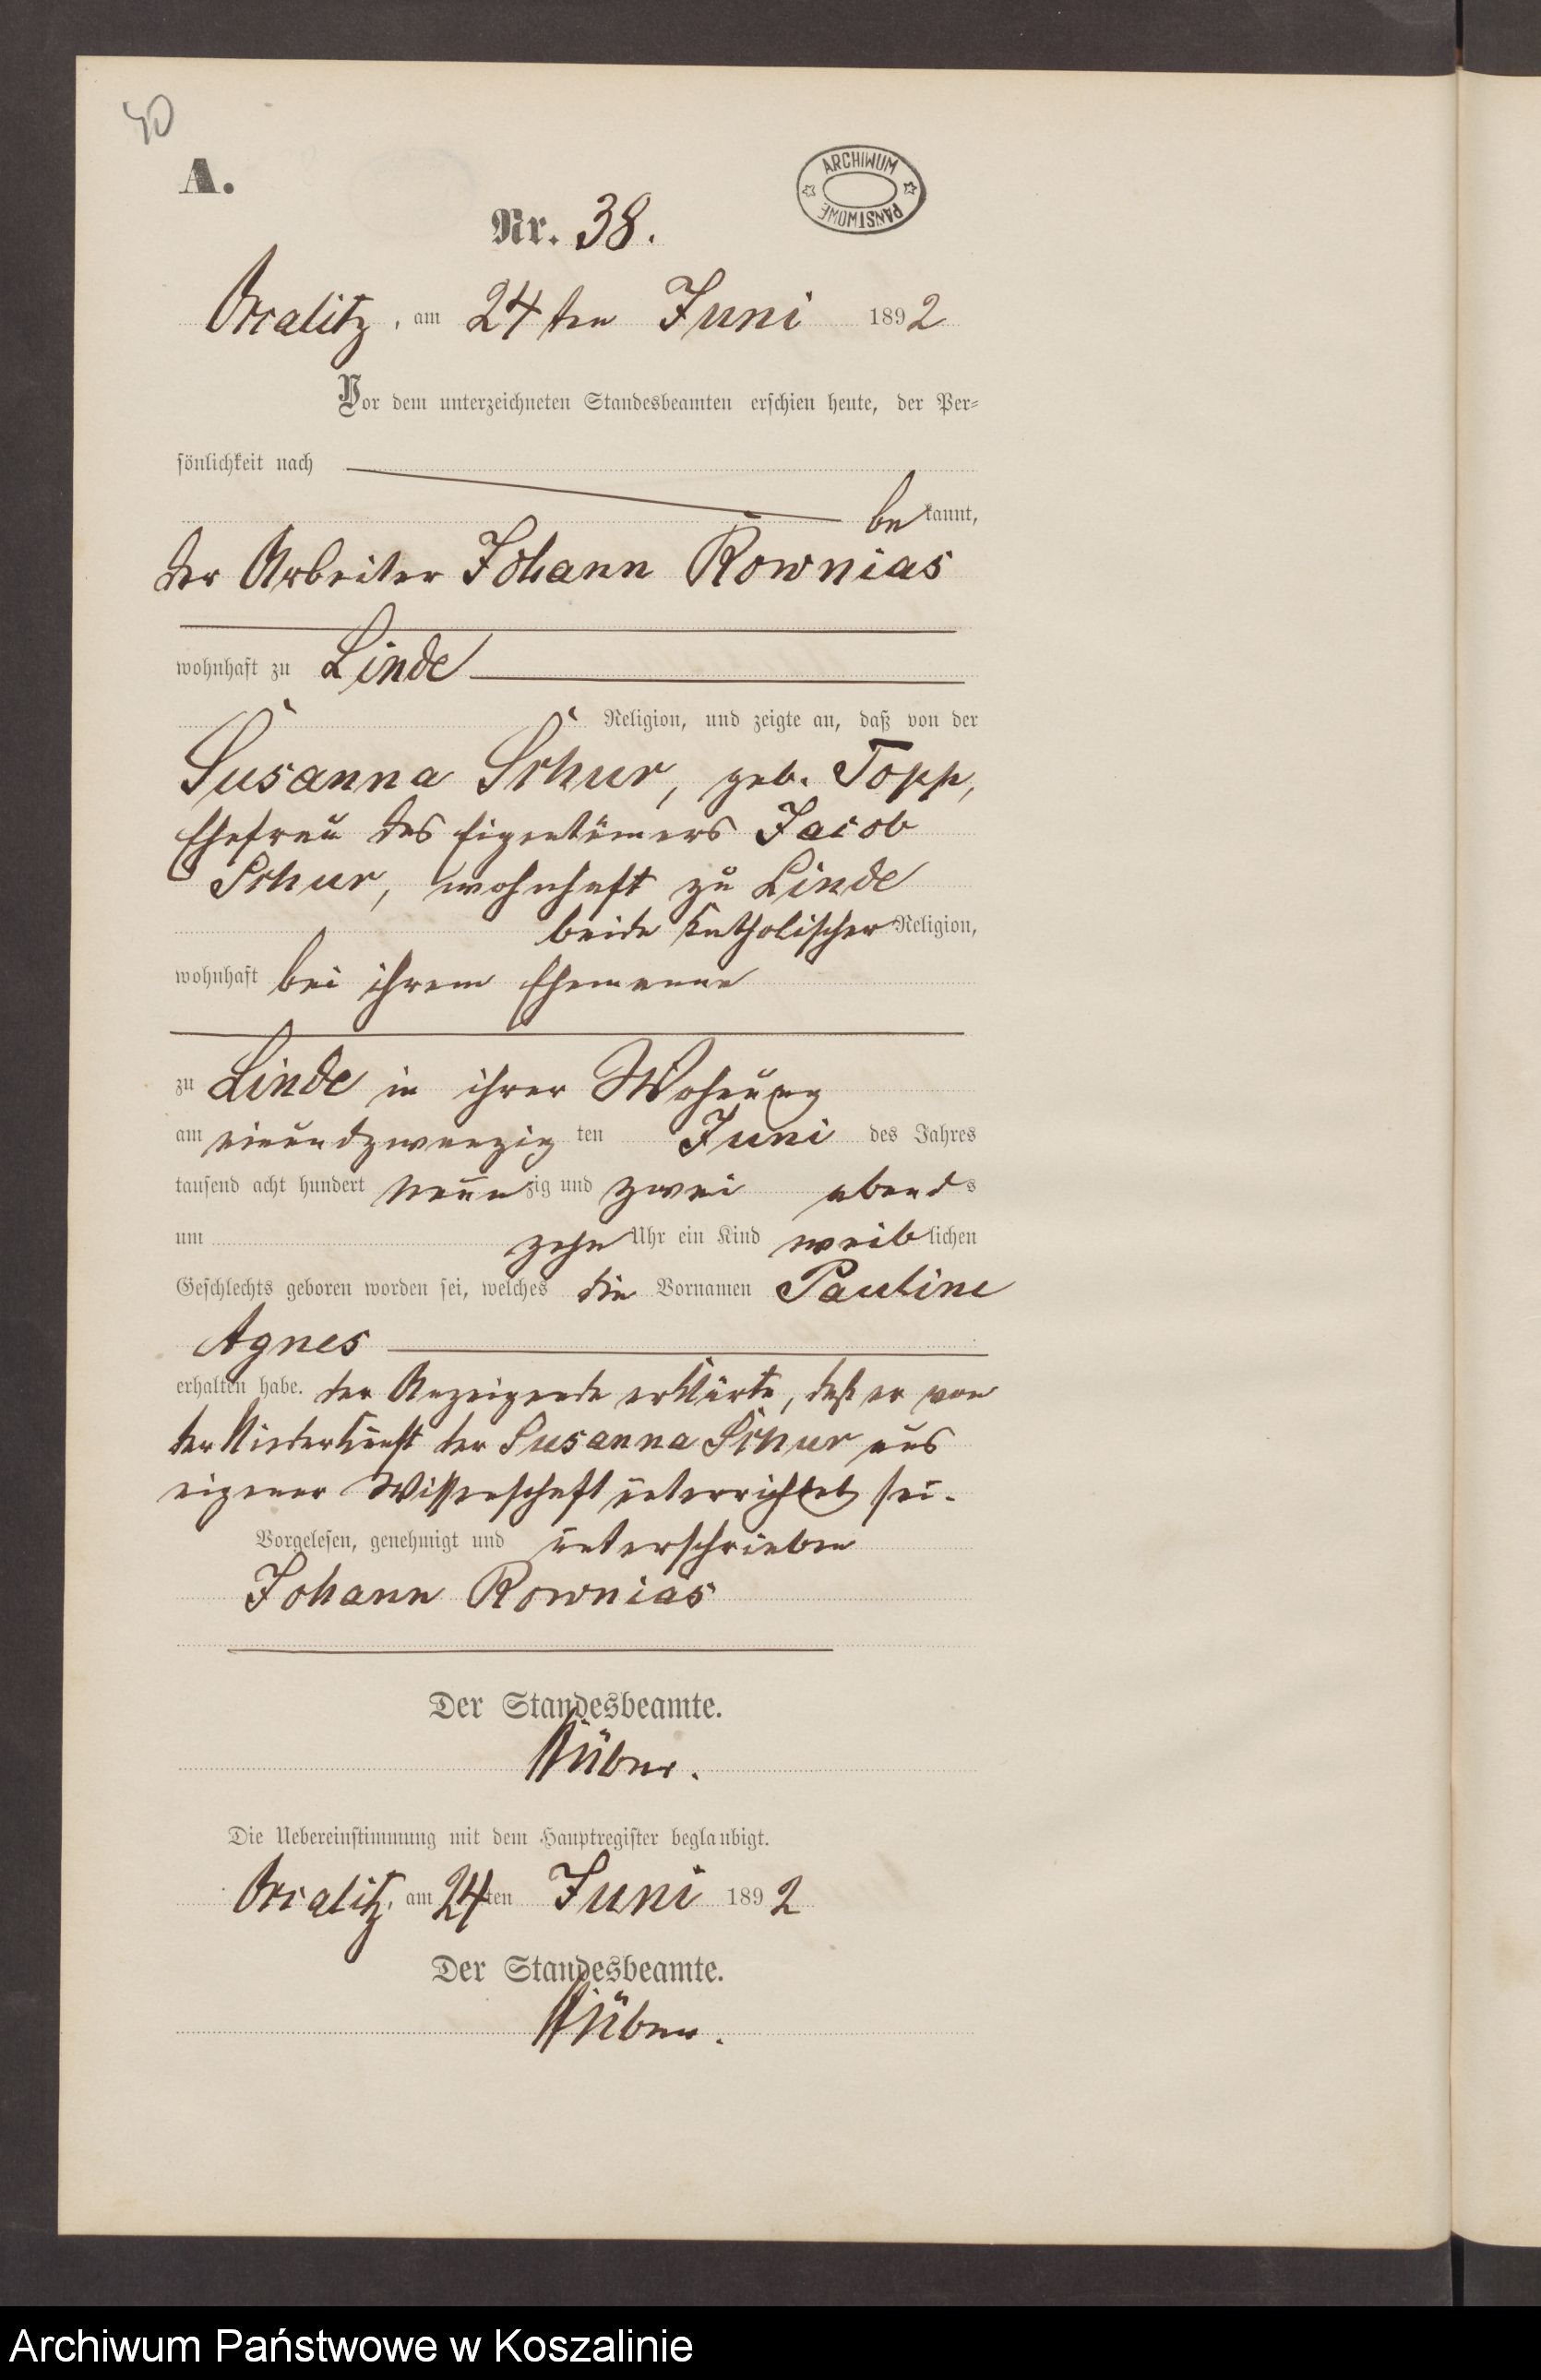 40
A.
ARCHIWUM PAŃSTWOWE
Nr. 38.
Oscalitz, am 24ten Juni 1892
Vor dem unterzeichneten Standesbeamten erschien heute, der Per-
sönlichkeit nach
bekannt,
der Arbeiter Johann Rownias
wohnhaft zu Linde
Religion, und zeigte an, daß von der
Susanna Schur, geb. Topp,
Ehefrau des Eigentümers Jacob
Schur, wohnhaft zu Linde
beide katholischer Religion,
wohnhaft bei ihrem Ehemanne
zu Linde in ihrer Wohnung
am einundzwanzigten Juni des Jahres
tausend acht hundert neunzig und zwei abends
um zehn Uhr ein Kind weiblichen
Geschlechts geboren worden sei, welches die Vornamen Pauline
Agnes
erhalten habe. der Anzeigende erklärte, daß er von
der Niederkunft der Susanna Schur aus
eigener Wissenschaft unterrichtet sei.
Vorgelesen, genehmigt und unterschrieben
Johann Rownias
Der Standesbeamte.
Die Uebereinstimmung mit dem Hauptregister beglaubigt.
Oscalitz, am 24ten Juni 1892
Der Standesbeamte.
Archiwum Państwowe w Koszalinie